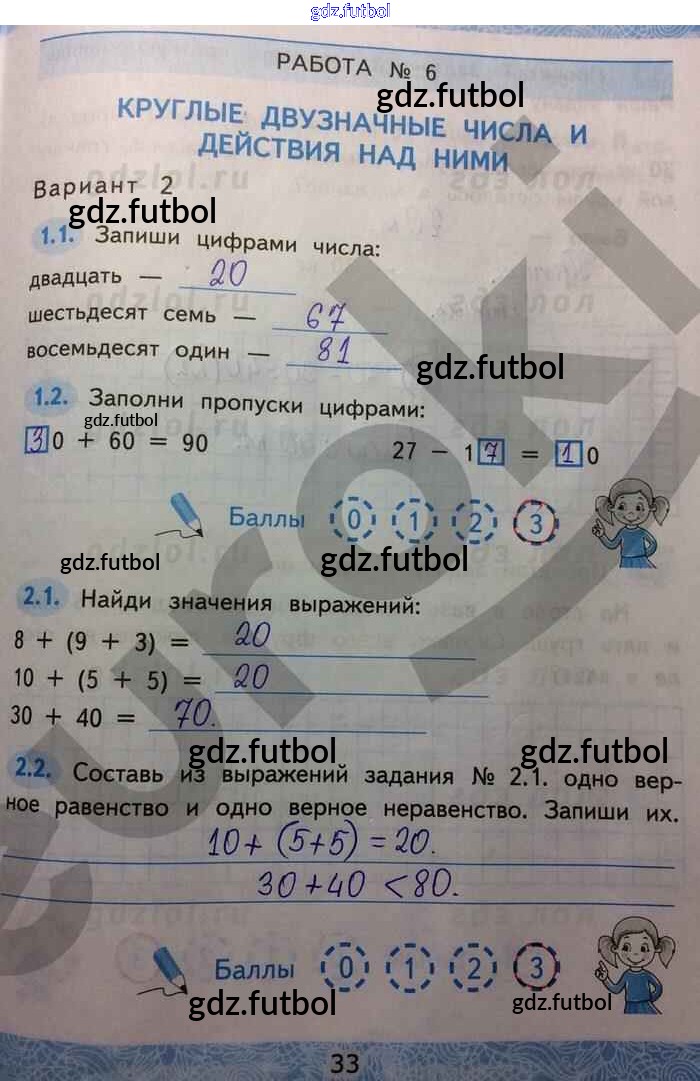 gdz.futbol
РАБОТА № 6
gdz.futbol
КРУГЛЫЕ ДВУЗНАЧНЫЕ ЧИСЛА И
ДЕЙСТВИЯ НАД НИМИ
Вариант 2
gdz.futbol
1.1. Запиши цифрами числа:
двадцать — 20
шестьдесят семь — 67
восемьдесят один — 81
gdz.futbol
1.2. Заполни пропуски цифрами:
gdz.futbol
30 + 60 = 90
27 − 17 = 10
Баллы 0 1 2 3
gdz.futbol gdz.futbol
2.1. Найди значения выражений:
8 + (9 + 3) = 20
10 + (5 + 5) = 20
30 + 40 = 70.
gdz.futbol gdz.futbol
2.2. Составь из выражений задания № 2.1. одно вер-
ное равенство и одно верное неравенство. Запиши их.
10+ (5+5) = 20.
30+40 < 80.
Баллы 0 1 2 3
gdz.futbol gdz.futbol
33
euroki